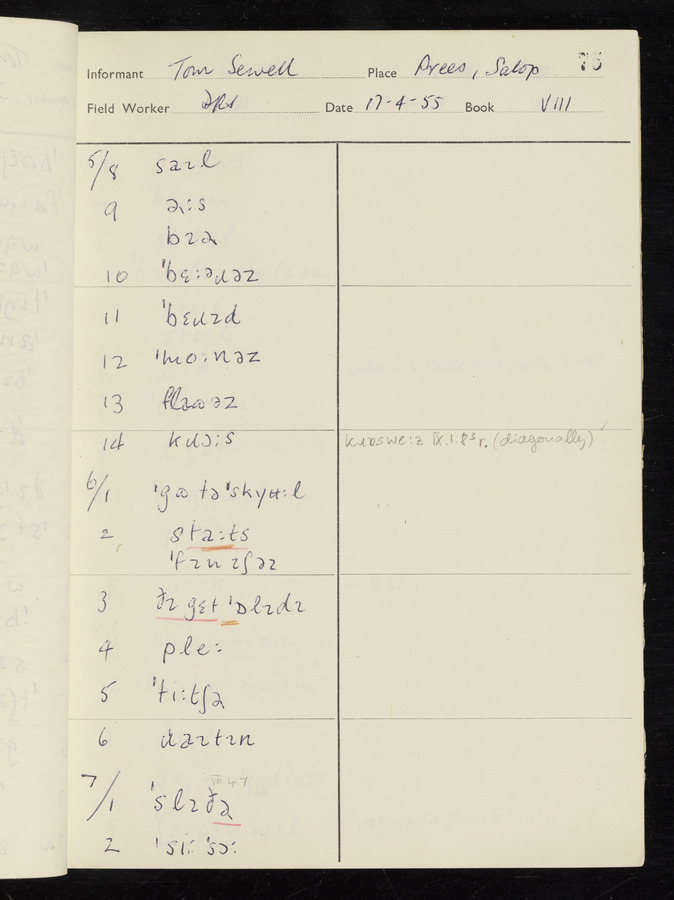 75
Informant Tom Sewell Place Prees, Salop
Field Worker DRS Date 17-4-55 Book VIII
5/8 saɪl
9 ɚ:s
bɪɚ
10 'bɛ:əɹəz
11 'bɛɹɪd
12 'mɔ:nəz
13 flaʊəz
14 kɹɔ:s kɹɒswe:z IX.1.8 r. (diagonally)
6/1 'goʊtə'skyʉ:l
2 sta:ts
'fɪnɪʃəz
3 ðɪ gɛt 'ɒlɪdɪ
4 ple:
5 'ti:tʃɚ
6 ɹaɪtɪn
7/1 'slɪðɚ
2 'si:'sɔ: